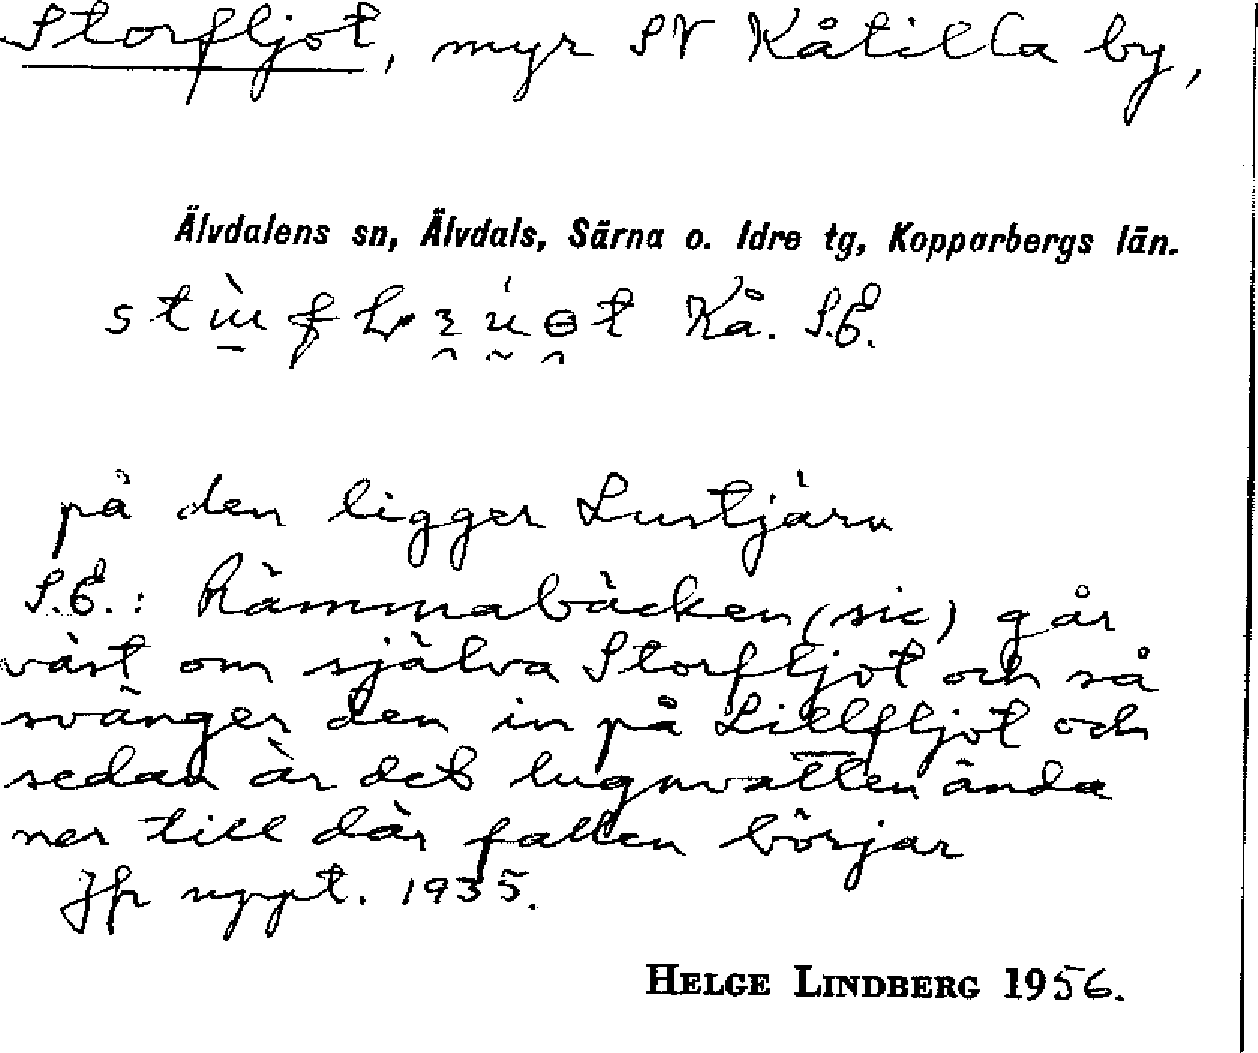 Storfljot, myr SV Kåtilla by,
Älvdalens sn, Älvdals, Särna o. Idre tg, Kopparbergs län.
Kå. S.E.
på den ligger Lustjärn
S.E.: Rämmabäcken (sic) går
väst om själva Storfljot och så
svänger den in på Lillfljot och
sedan är det lugnvatten ända
ner till där fallen börjar
Jfr uppt. 1935.
HELGE LINDBERG 1956.